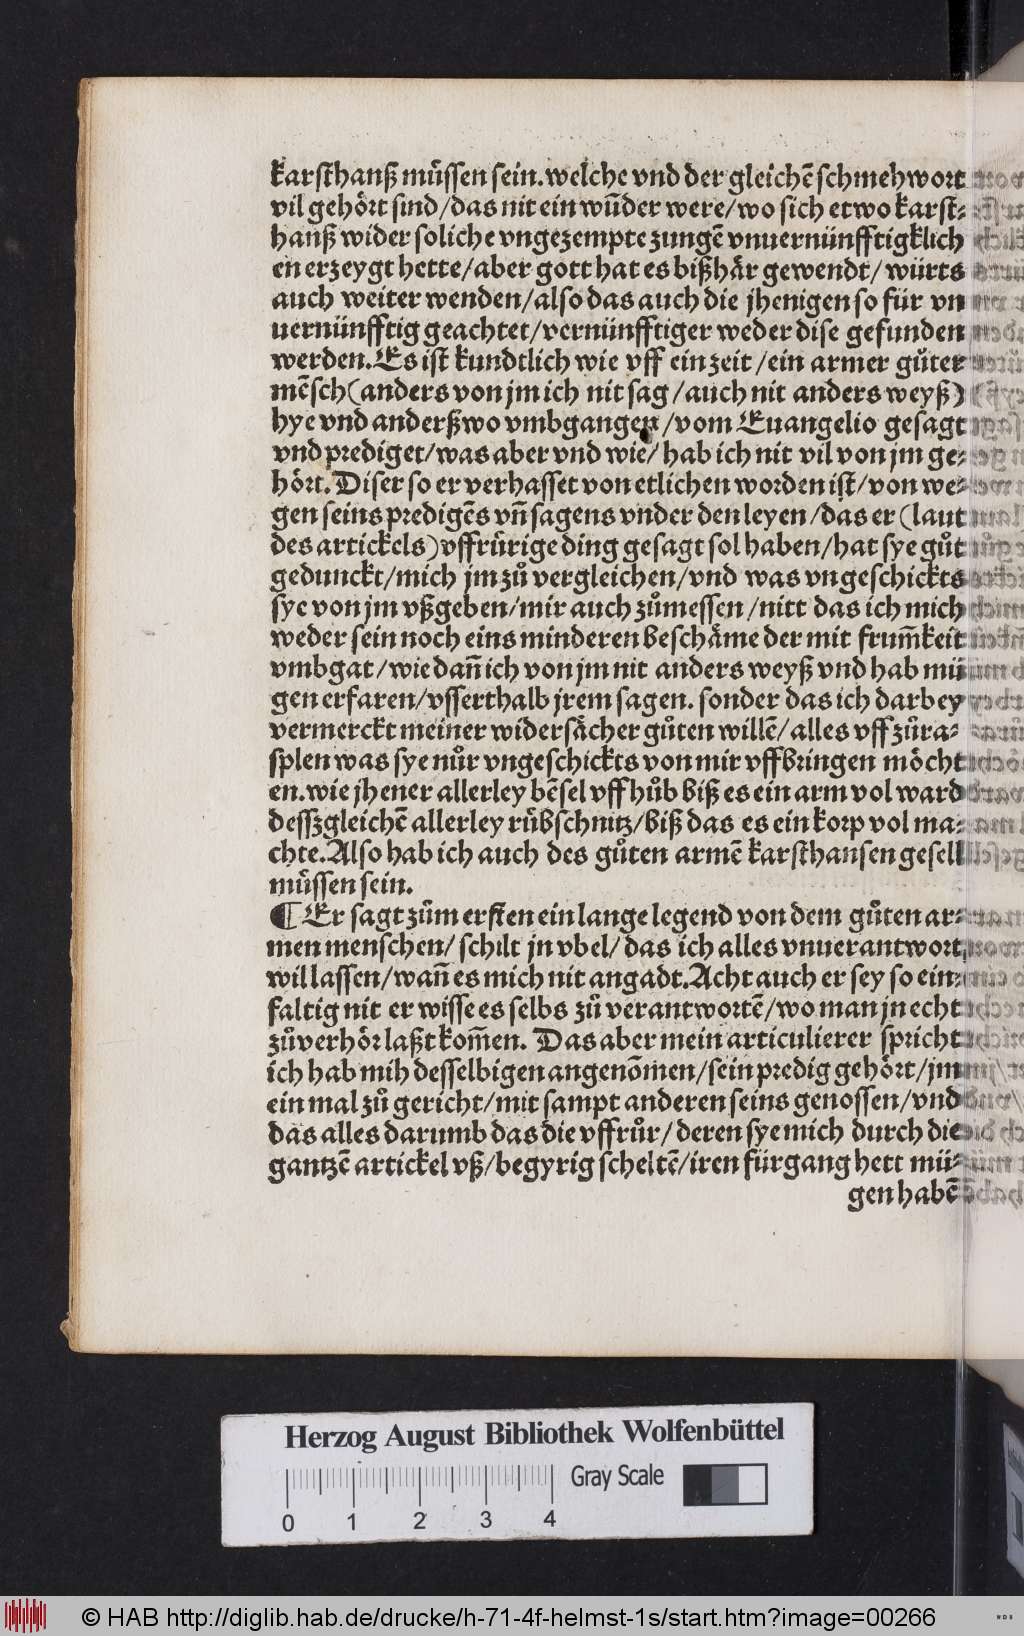 karsthanß muͤssen sein. welche vnd der gleichẽ schmehwort
vil gehoͤrt sind/das nit ein wũder were/wo sich etwo karst⸗
hanß wider soliche vngezempte zungẽ vnuernünfftigklich
en erzeygt hette/aber gott hat es bißhaͤr gewendt/ würts
auch weiter wenden/also das auch die jhenigen so für vn
uernünfftig geachtet/vernünfftiger weder dise gefunden
werden. Es ist kundtlich wie vff ein zeit /ein armer guͦter
mẽsch(anders von jm ich nit sag /auch nit anders weyß)
hye vnd anderßwo vmbgangen /vom Euangelio gesagt
vnd prediget/was aber vnd wie/ hab ich nit vil von jm ge⸗
hoͤrt. Diser so er verhasset von etlichen worden ist/von we⸗
gen seins predigẽs vñ sagens vnder den leyen /das er (laut
des artickels)vffruͤrige ding gesagt sol haben/hat sye guͦt
gedunckt/mich jm zuͦ vergleichen/vnd was vngeschickts
sye von jm vßgeben/mir auch zuͦmessen /nitt das ich mich
weder sein noch eins minderen beschaͤme der mit frum̃keit
vmbgat/wie dañ ich von jm nit anders weyß vnd hab mü
gen erfaren/vsserthalb jrem sagen. sonder das ich darbey
vermerckt meiner widersaͤcher guͦten willẽ/ alles vff zuͦra⸗
splen was sye nuͦr vngeschickts von mir vffbringen moͤcht
en. wie jhener allerley bẽsel vff huͦb biß es ein arm vol ward
desszgleichẽ allerley ruͤbschnitz/biß das es ein korp vol ma⸗
chte. Also hab ich auch des guͦten armẽ karsthansen gesell
muͤssen sein.
¶ Er sagt zuͦm ersten ein lange legend von dem guͦten ar⸗
men menschen/ schilt jn vbel/ das ich alles vnuerantwort
wil lassen/wañ es mich nit angadt. Acht auch er sey so ein⸗
faltig nit er wisse es selbs zuͦ verantwortẽ/wo man jn echt
zuͦverhoͤr laßt kom̃en. Das aber mein articulierer spricht
ich hab mih desselbigen angenõmen/sein predig gehoͤrt/jm
ein mal zuͦ gericht/mit sampt anderen seins genossen/vnd
das alles darumb das die vffruͦr/ deren sye mich durch die
gantzẽ artickel vß/begyrig scheltẽ/iren fürgang hett mü⸗
gen habẽ
Herzog August Bibliothek Wolfenbüttel
Gray Scale
0 1 2 3 4
© HAB http://diglib.hab.de/drucke/h-71-4f-helmst-1s/start.htm?image=00266